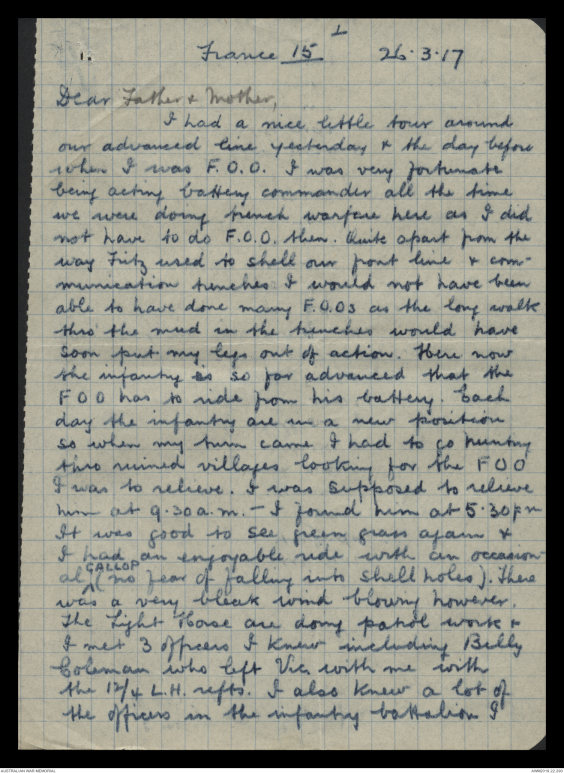 1.
France 15 26.3.17
Dear Father & Mother,
I had a nice little tour around
our advanced line yesterday & the day before
when I was F.O.O. I was very fortunate
being acting battery commander all the time
we were doing trench warfare here as I did
not have to do F.O.O. then. Quite apart from the
way Fritz used to shell our front line & com-
munication trenches I would not have been
able to have done many F.O.Os as the long walk
thro' the mud in the trenches would have
soon put my legs out of action. Here now
the infantry is so far advanced that the
F O O has to ride from his battery. Each
day the infantry are in a new position
so when my turn came I had to go hunting
thro ruined villages looking for the F O O
I was to relieve. I was supposed to relieve
him at 9.30 a.m. - I found him at 5.30 pm
It was good to see green grass again &
I had an enjoyable ride with an occasion-
al GALLOP (no fear of falling into shell holes). There
was a very bleak wind blowing however.
The Light Horse are doing patrol work &
I met 3 officers I knew including Billy
Coleman who left Vic with me with
the 17/4 L.H. refts. I also knew a lot of
the officers in the infantry battalion I
AUSTRALIAN WAR MEMORIAL